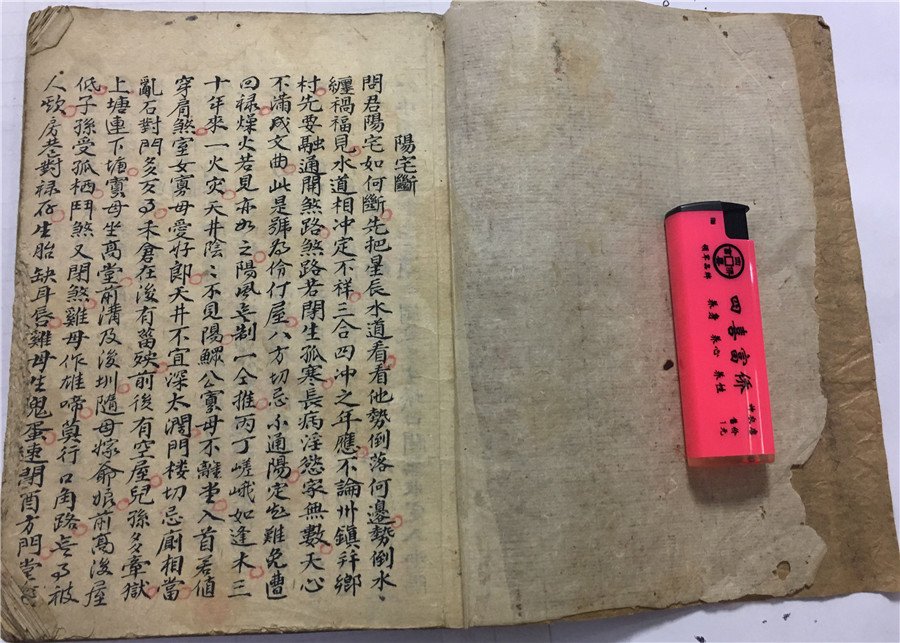 陽宅斷
問君陽宅如何斷先把星辰水道看看他勢倒落何邊勢倒水
纏禍福見水道相冲定不祥三合四冲之年應不論州鎮并鄉
村先要融通開煞路煞路若閉生孤寒長病淫慾家無數天心
不滿成文曲此是號為伶仃屋八方切忌小通陽定然難免遭
回禄燥火若見亦如之陽風無制一仝推丙丁嵯峨如逢木三
十年來一火灾天井陰〻不見陽鰥公寡母不離堂入首若值
穿肩煞室女寡母愛好郎天井不宜深太濶門楼切忌廁相當
亂石對門多禾倉在後有殃前後有空屋兒孫多牽獄
上塘連下塘寡母坐高堂前溝及後圳隨母嫁爺娘前高後屋
低子孫受孤栖鬥煞又閉煞雞母作雄啼莫行口角路無被
人欺房巷對禄存生胎缺耳唇雞母生鬼蛋速閉酉方門堂
四喜富侨
养身 养心 养性
售价
1元